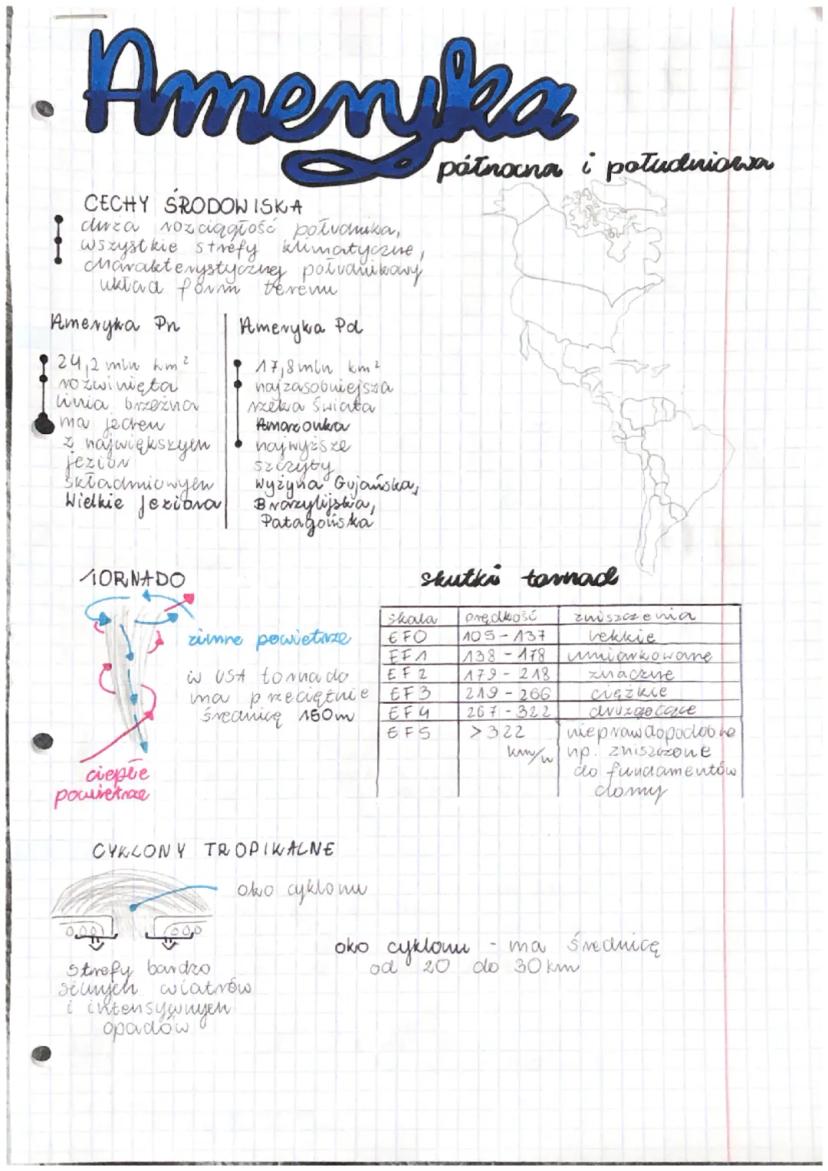 Ameryka
północna i południowa
CECHY ŚRODOWISKA
duża rozciągłość południka,
wszystkie strefy klimatyczne,
charakterystycznej południkowy
układ form terenu
Ameryka Pn
24,2 mln km²
rozwinięta
linia brzeżna
ma jeden
z największych
jezior
składniowych
Wielkie Jeziora
Ameryka Pd
17,8 mln km²
najzasobniejsza
rzeka świata
Amazonka
najwyższe
szczyty
Wyżyna Gujańska,
Brazylijska,
Patagońska
TORNADO
zimne powietrze
w USA tornado
ma przeciętnie
średnicę 160m
ciepłe
powietrze
skutki tornad
skala prędkość zniszczenia
EF0 105-137 lekkie
EF1 138-178 umiarkowane
EF2 179-218 znaczne
EF3 219-266 ciężkie
EF4 267-322 druzgocące
EF5 >322 nieprawdopodobne
km/h np. zniszczone
do fundamentów
domy
CYKLONY TROPIKALNE
oko cyklonu
strefy bardzo
silnych wiatrów
i intensywnych
opadów
oko cyklonu - ma średnicę
od 20 do 30 km